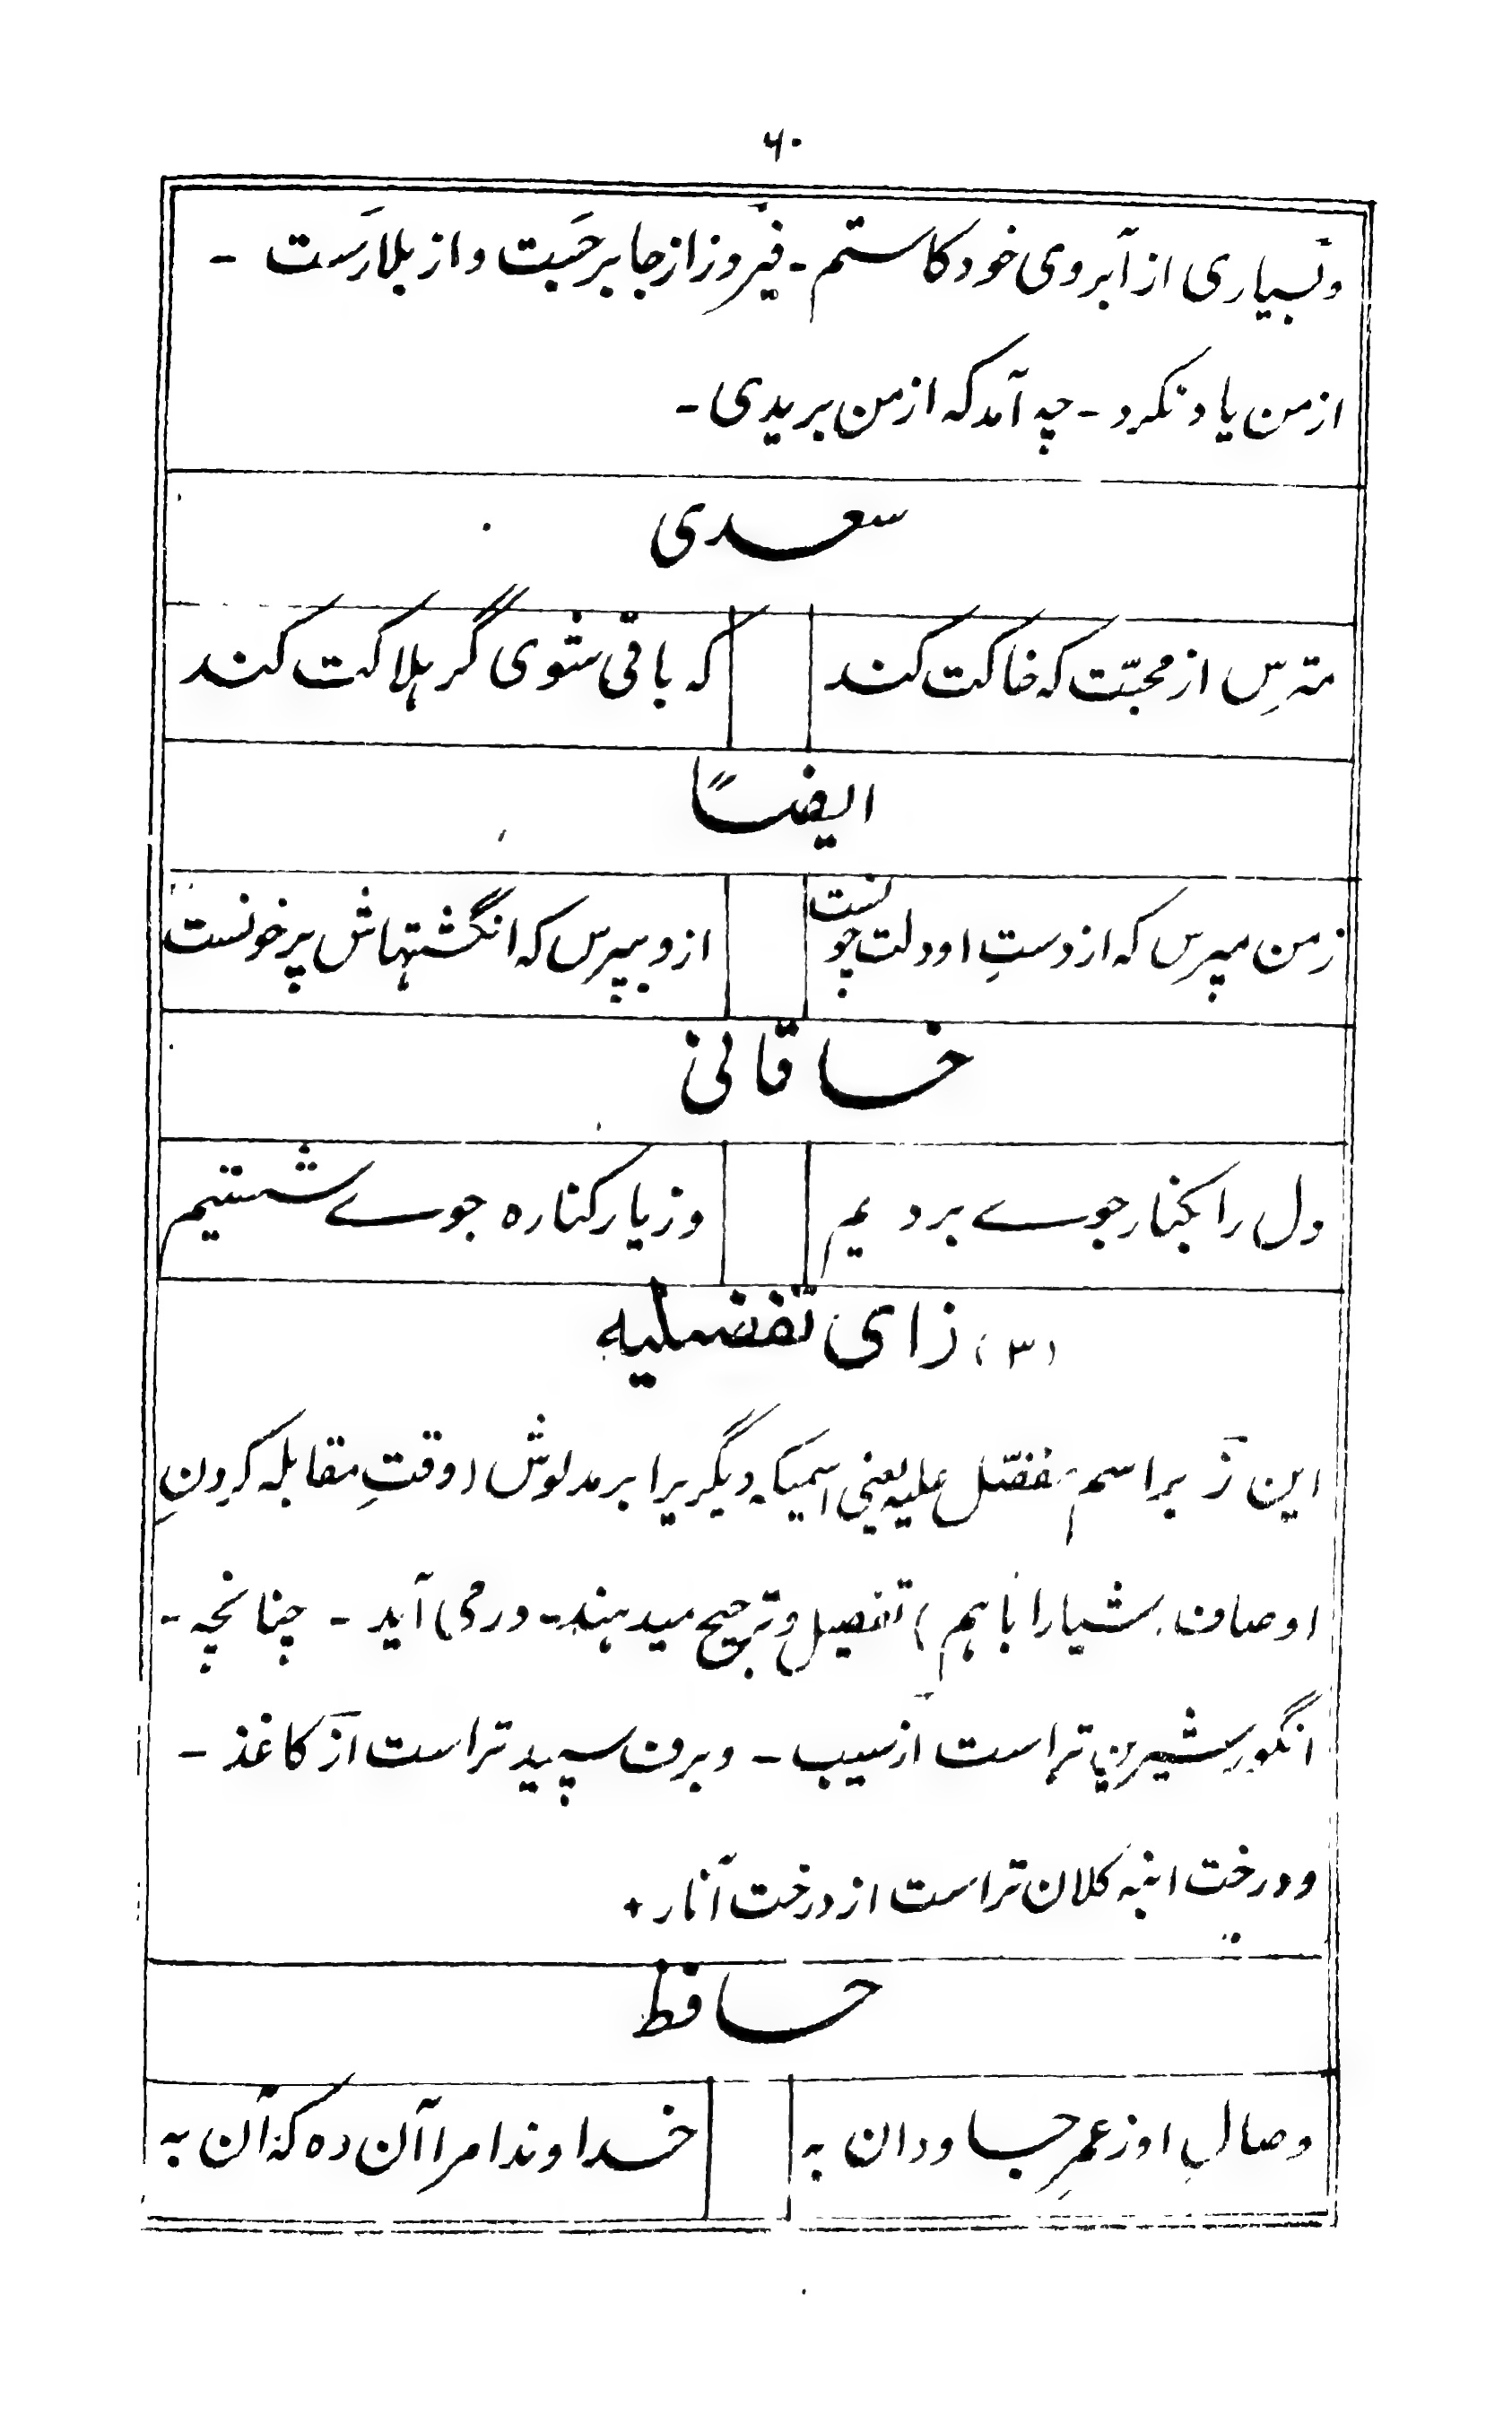 ۶۰
وبسیاری از آبروی خود کاستم - فیروز از جا برجَست و از بلا رَست -
از من یاد نکرد - چه آمد که از من بریدی -
سعدی
مترس از محبّت که خاکت کند که باقی شوی گر هلاکت کند
ایضاً
زمن مپرس که از دستِ او دلت چونست ازو بپرس که انگشتهاش پرخونست
خاقانی
دل را بکنار جوے بردیم وز یار کناره جوے شستیم
(۳) زای تفضلیه
این زَ بر اسم مفضّل علیه یعنی اسمیکه دیگریرا بر مدلوش (وقتِ مقابله کردنِ
اوصاف اشیا را باهم) تفصیل و ترجیح میدهند - در می آید - چنانچه -
انگور شیرین تر است اَز سیب - و برف سپید تر است اَز کاغذ -
و درخت انبه کلان تر است از درخت اَنار +
حافظ
وصالِ او ز عمرِ جاودان به خداوندا مرا آن ده که آن به